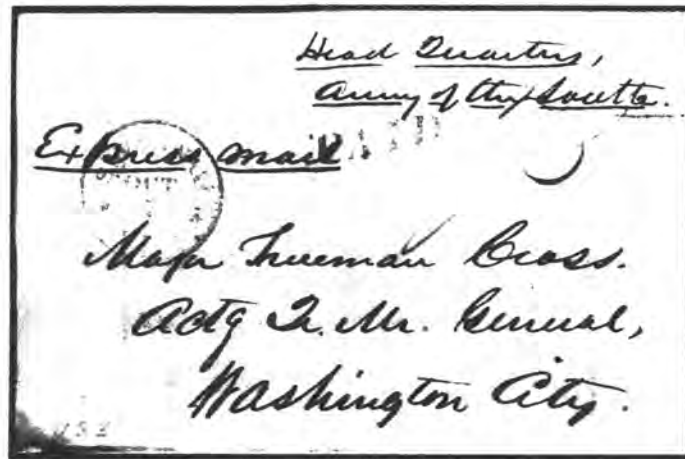 Head Quarters,
Army of the South.
Express mail
Major Trueman Cross.
Actg Qr. Mr. General,
Washington City.